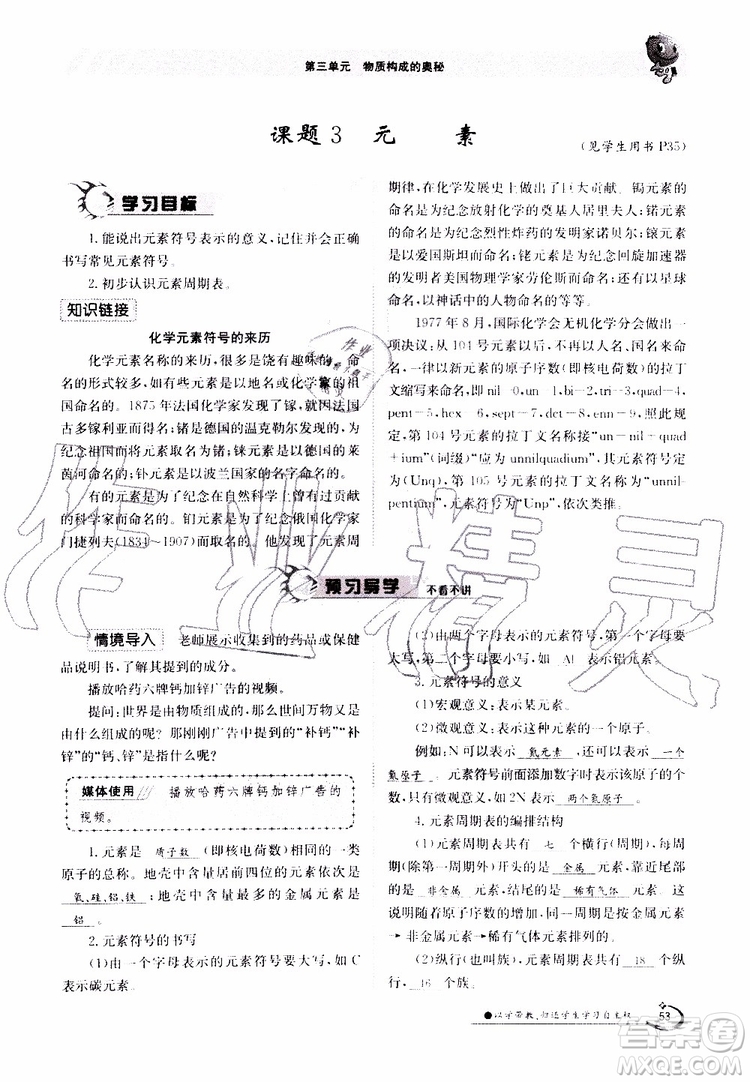 第三单元　物质构成的奥秘
课题3　元　素
(见学生用书 P35)
学习目标
1.能说出元素符号表示的意义,记住并会正确
书写常见元素符号。
2.初步认识元素周期表。
知识链接
化学元素符号的来历
化学元素名称的来历,有很多是很有趣味的。命
名的形式较多,有些元素是以地名或化学家的祖
国命名的。1875年法国化学家发现了镓,命名为法国
古多镓利亚而得名:锗是德国的温克勒尔发现,
为纪念祖国命名为锗元素;铼元素是以德国的莱
茵河命名的;钋元素是以波兰国家的名字命名的。
有的元素是为了纪念在自然科学上曾有过贡献
的科学家而命名的。钔元素是为了纪念俄国化学家
门捷列夫(1834～1907)而命名的。他发现了元素周
期律,在化学发展史上做出了巨大贡献。锔元素的
命名是为纪念放射化学的奠基人居里夫人;锘元素
的命名是为纪念烈性炸药的发明家诺贝尔;锿元素
是以爱因斯坦而命名的;铹元素是为纪念回旋加速器
的发明者美国物理学家劳伦斯而命名的;还有以星球
命名,以神话中的人物命名的等等。
1977年8月,国际化学会无机化学分会做出一
项决议:从104号元素以后,不再以人名、国名来命
名,一律以新元素的原子序数(即核电荷数)的拉丁
文缩写来命名,即 nil－0,un－1,bi－2,tri－3,quad－4,
pent－5,hex－6,sept－7,oct－8,enn－9。照此规定,
第104号元素的拉丁文名称接“un－nil－quad
＋ium”(词缀)“unnilquadium”,其元素符号定
为(Unq),第105号元素的拉丁文名称为“unnil-
pentium”,元素符号为“Unp”,依次类推。
预习导学　不看不讲
情境导入　老师展示收集到的药品或保健
品说明书,了解其提到的成分。
播放哈药六牌钙加锌广告的视频。
提问:世界是由物质组成的,那世间万物又是
由什么组成的呢?那刚刚广告中的“补钙”“补
锌”的“钙、锌”是指什么呢?
媒体使用　播放哈药六牌钙加锌广告的
视频。
1.元素是 质子数 (即核电荷数)相同的一类
原子的总称。地壳中含量居前四位的元素依次是
氧、硅、铝、铁 ,地壳中含量最多的金属元素是
铝 。
2.元素符号的书写
(1)由一个字母表示的元素符号要大写,如 C
表示碳元素。
(2)由两个字母表示的元素符号,第一个字母要
大写,第二个字母要小写,如 Al 表示铝元素。
3.元素符号的意义
(1)宏观意义:表示某元素。
(2)微观意义:表示这种元素的一个原子。
例如:N可以表示 氮元素 ,还可以表示 一个
氮原子 。元素符号前面添加数字时表示该原子的个
数,只有微观意义,如2N表示 两个氮原子 。
4.元素周期表的编排结构
(1)元素周期表共有 七 个横行(周期)。每
周期(除第一周期)开头的是 金属 元素,靠近尾部
的是 非金属 元素,结尾的是 稀有气体 元素,这
说明随着原子序数的增加,同一周期是按金属元素
→非金属元素→稀有气体元素排列的。
(2)纵行(也叫族),元素周期表共有 18 个纵
行, 16 个族。
●以学带教,归还学生学习自主权
53
作业精灵